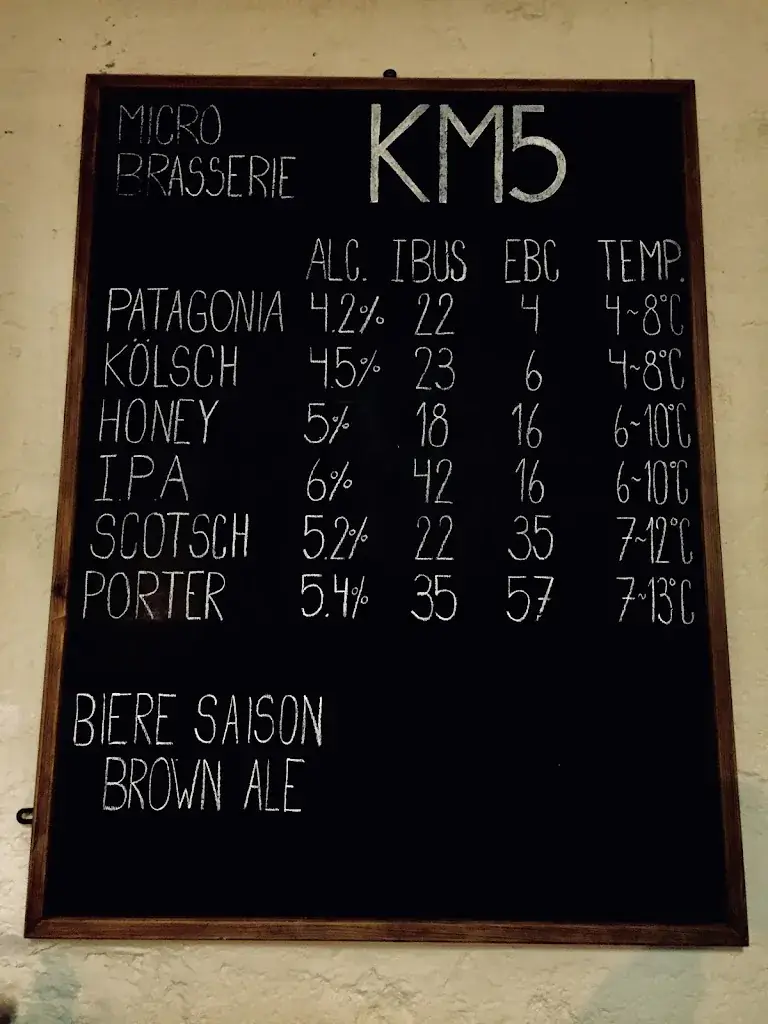 MICRO
BRASSERIE KM5
ALC. IBUS EBC TEMP.
PATAGONIA 4.2% 22 4 4~8°C
KÖLSCH 4.5% 23 6 4~8°C
HONEY 5% 18 16 6~10°C
I.P.A 6% 42 16 6~10°C
SCOTSCH 5.2% 22 35 7~12°C
PORTER 5.4% 35 57 7~13°C
BIERE SAISON
BROWN ALE